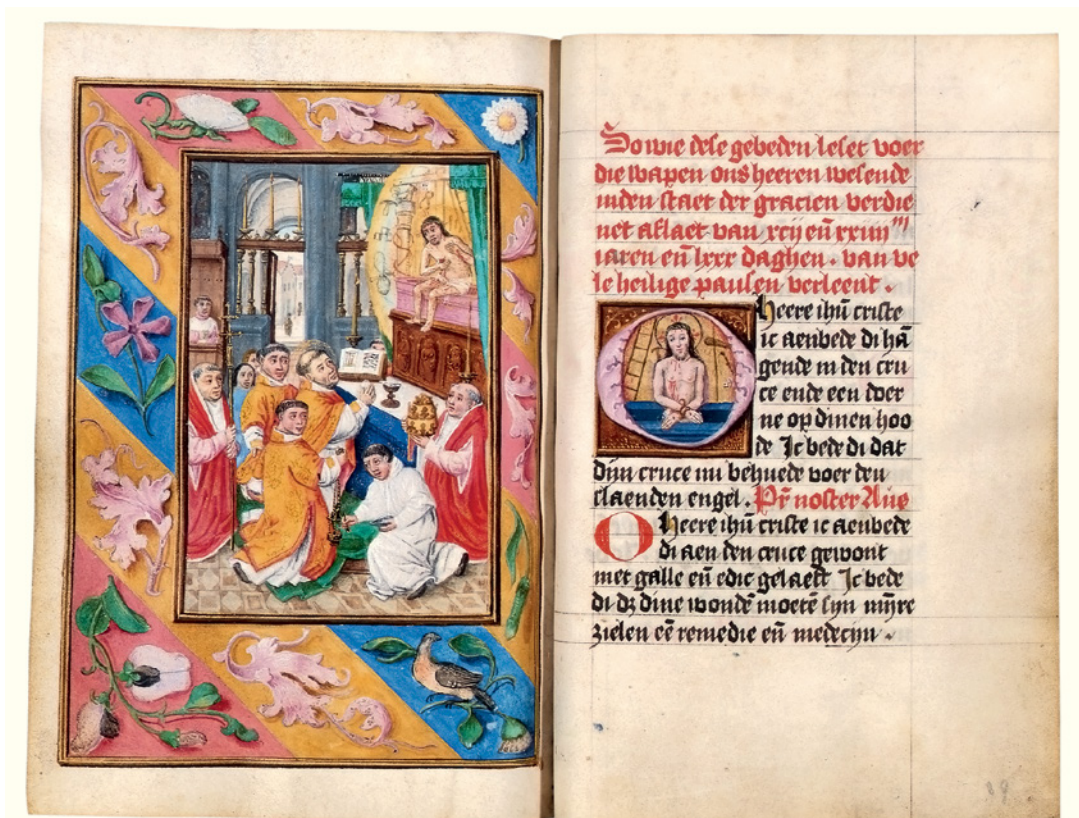 So wie dese gebeden leset voer
die wapen ons heeren wesende
inden staet der gracien verdie
net aflaet van xcij en̄ xxiiii m
iaren en̄ lxxx daghen . van ve
le heilige pausen verleent .
O heere ihū criste
ic aenbede di hā
gende in den cru
ce ende een doer
ne op dinen hoo
de Ic bede di dat
dijn cruce mi behuede voer den
slaenden engel . Pr̄ noster Aue
O heere ihū criste ic aenbede
di aen den cruce gewont
met galle en̄ edic gelaeft Ic bede
di dz dine wondē moetē syn mijre
zielen eē remedie en̄ medecijn .
19